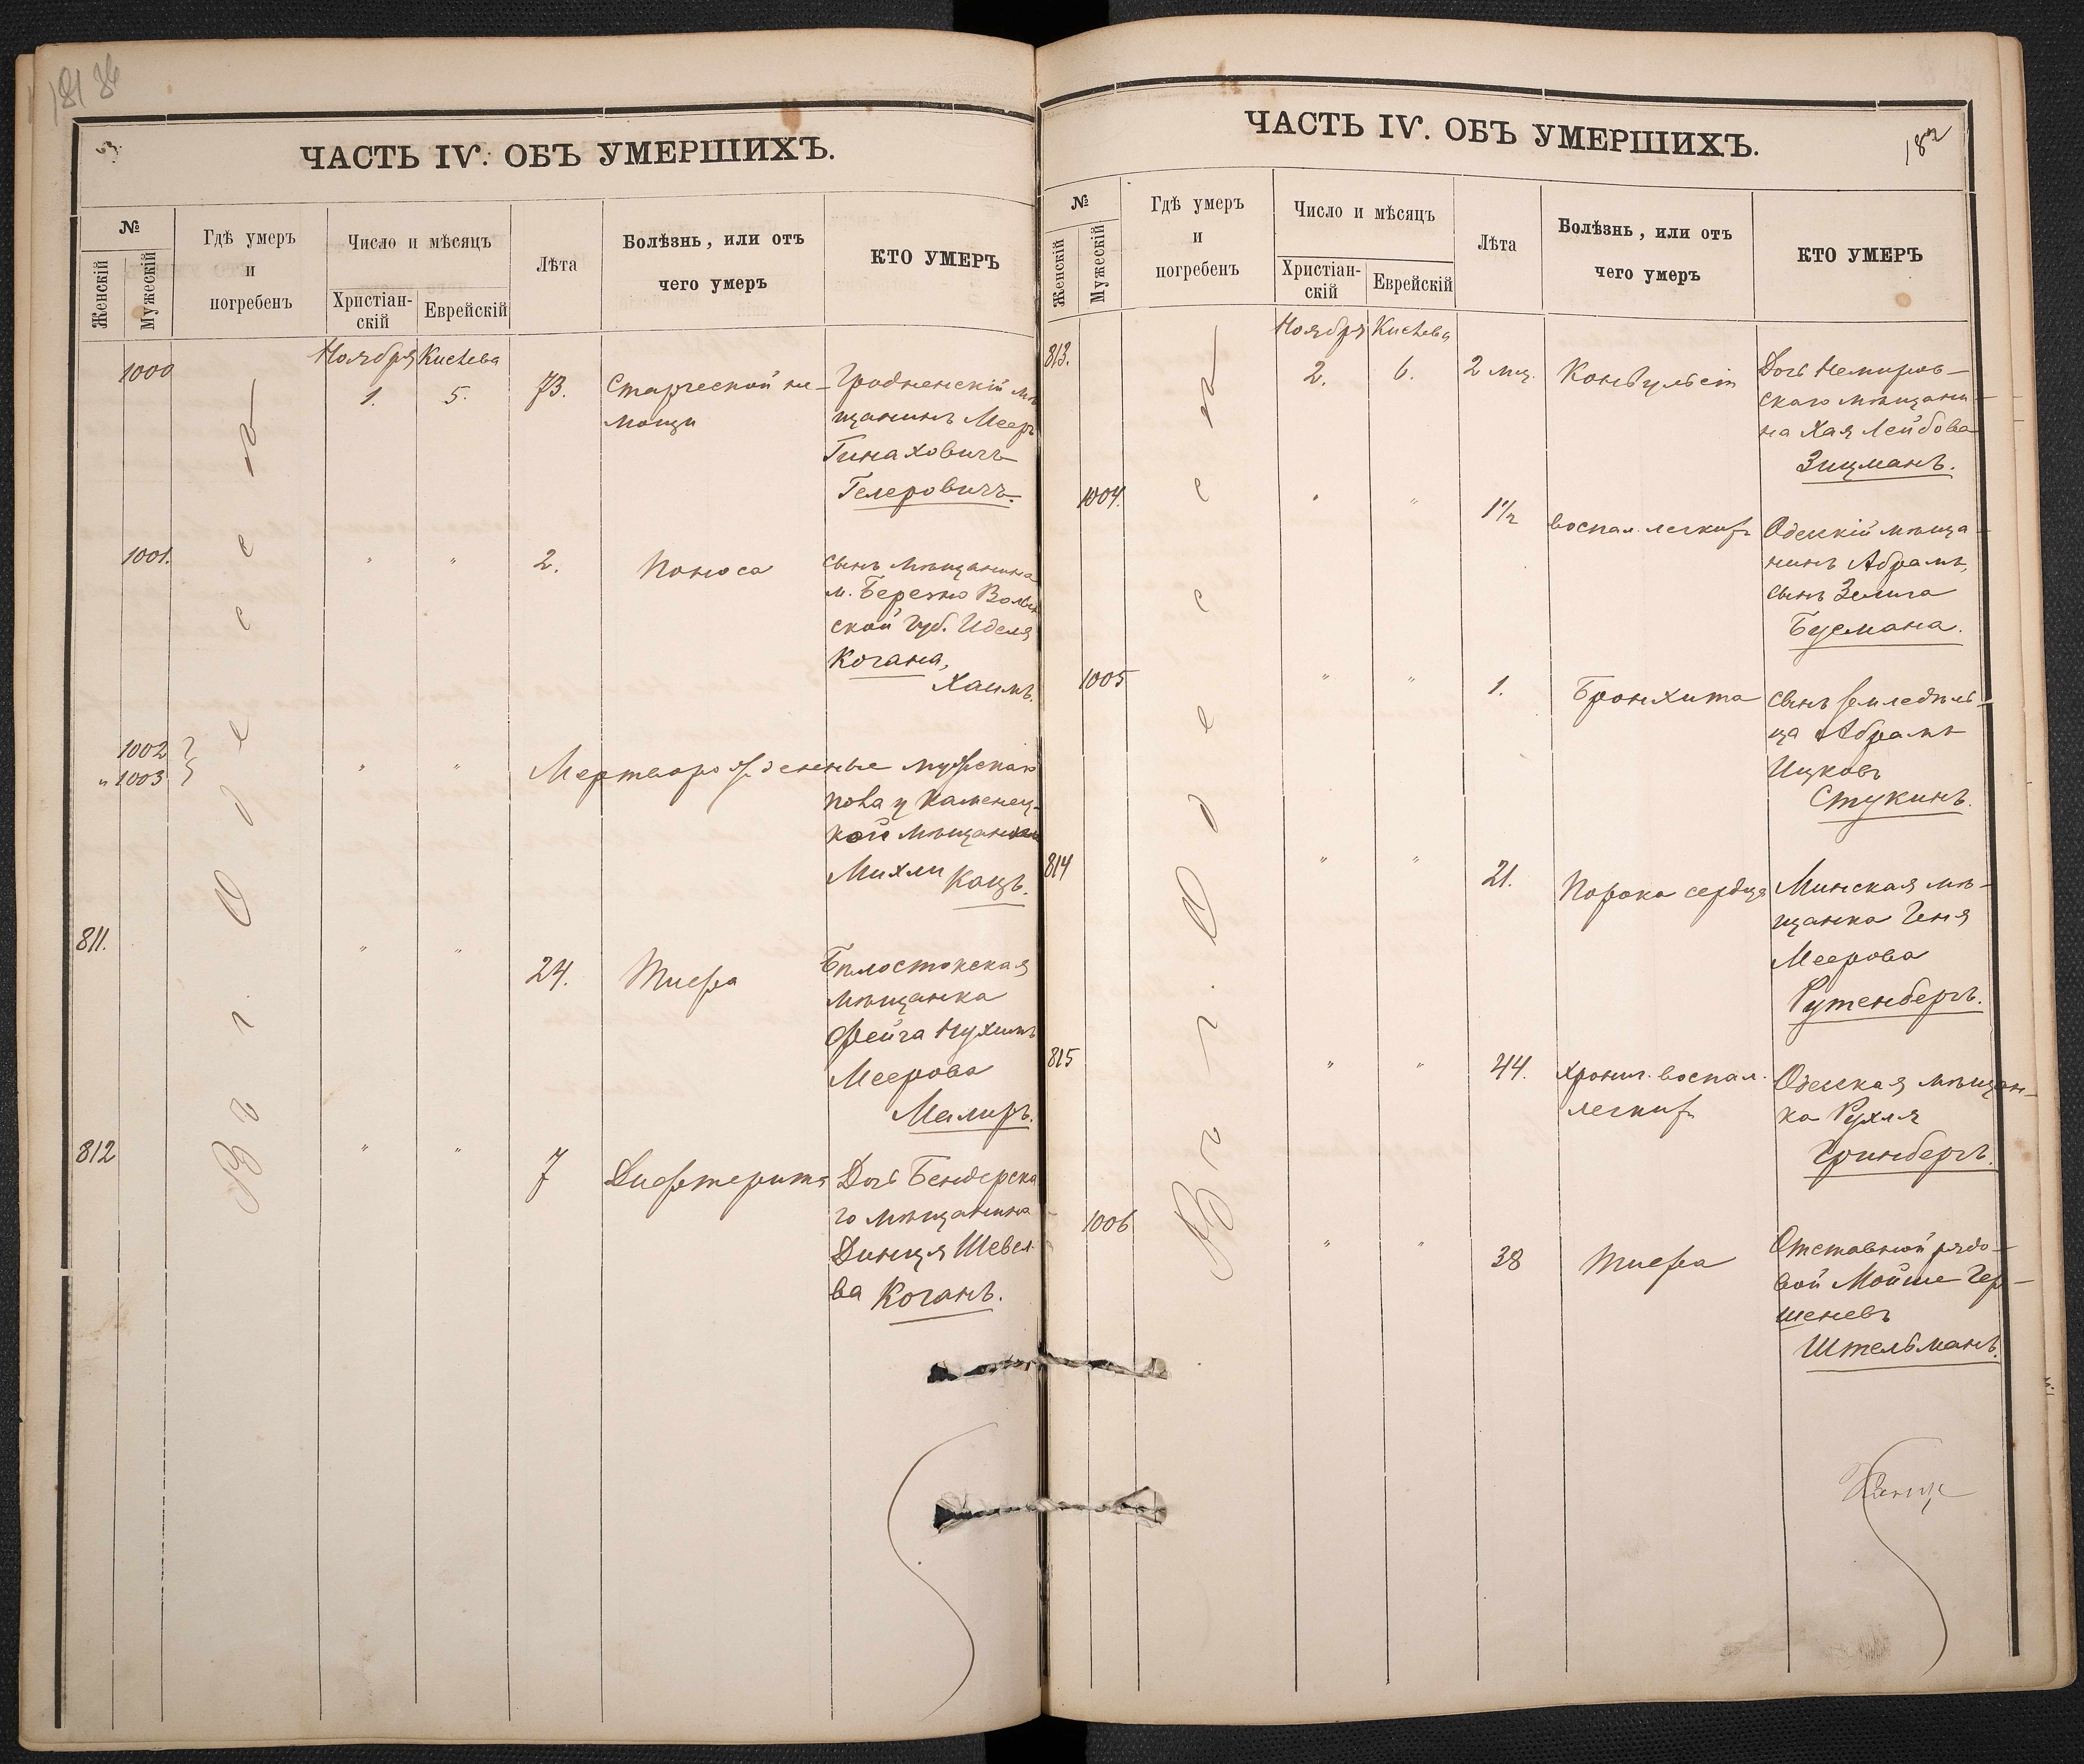 181
ЧАСТЬ IV. ОБЪ УМЕРШИХЪ.
№
Женскій
Мужескій
Гдѣ умеръ
и
погребенъ
Число и мѣсяцъ
Христіан-
скій
Еврейскій
Лѣта
Болѣзнь, или отъ
чего умеръ
КТО УМЕРЪ
Въ г. Одессѣ
Ноября Кислева
1000 1. 5. 73. Старческой не-
мощи
Гродненскій мѣ
щанинъ Мееръ
Гинаховичъ
Гелеровичъ.
1001. " " 2. Поноса
сынъ мѣщанина
м. Березно Волын
ской губ. Иделя
Когана,
Хаимъ.
1002
" 1003 " " Мертворожденные мужскаго
пола у Каменец-
кой мѣщанки
Михли Кацъ.
811. " " 24. Тифа
Бѣлостокская
мѣщанка
Фейга Нухимъ
Меерова
Меламръ.
812 " " 7 Дифтерита
Дочь Бендерска
го мѣщанина
Динця Шевел
ва Коганъ.
ЧАСТЬ IV. ОБЪ УМЕРШИХЪ.
182
№
Женскій
Мужескій
Гдѣ умеръ
и
погребенъ
Число и мѣсяцъ
Христіан-
скій
Еврейскій
Лѣта
Болѣзнь, или отъ
чего умеръ
КТО УМЕРЪ
Въ г. Одессѣ
Ноября Кислева
813. 2. 6. 2 мѣс. Конвульсіи
Дочь Немиров-
скаго мѣщани-
на Хая Лейбова
Зицманъ.
1004. " " 1½ воспал. легкихъ
Одесскій мѣща-
нинъ Абрамъ,
сынъ Зелига
Бусмана.
1005 " " 1. Бронхита
сынъ земледѣль-
ца Абрамъ
Ицковъ
Стукинъ.
814 " " 21. Порока сердца
Минская мѣ-
щанка Геня
Меерова
Рутенбергъ.
815 " " 44. Хронич. воспал.
легкихъ
Одесская мѣщан-
ка Рухля
Гринбергъ.
1006 " " 38 Тифа
Отставной рядо-
вой Мойше Гер-
шеневъ
Штельманъ.